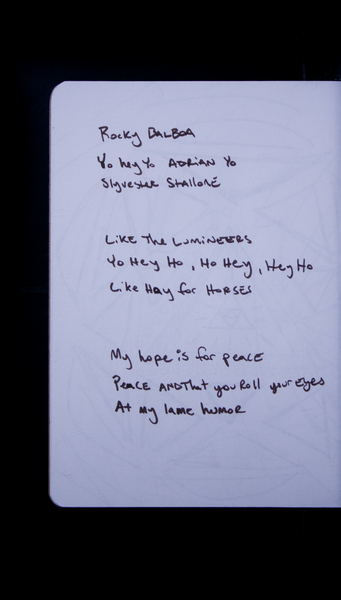 Rocky BALBOA
Yo hey Yo ADRIAN Yo
Slyvester Stallone
Like The LUMINEERS
Yo Hey Ho, Ho Hey, Hey Ho
Like Hay for HORSES
My hope is for peace
Peace AND that you Roll your Eyes
At my lame humor